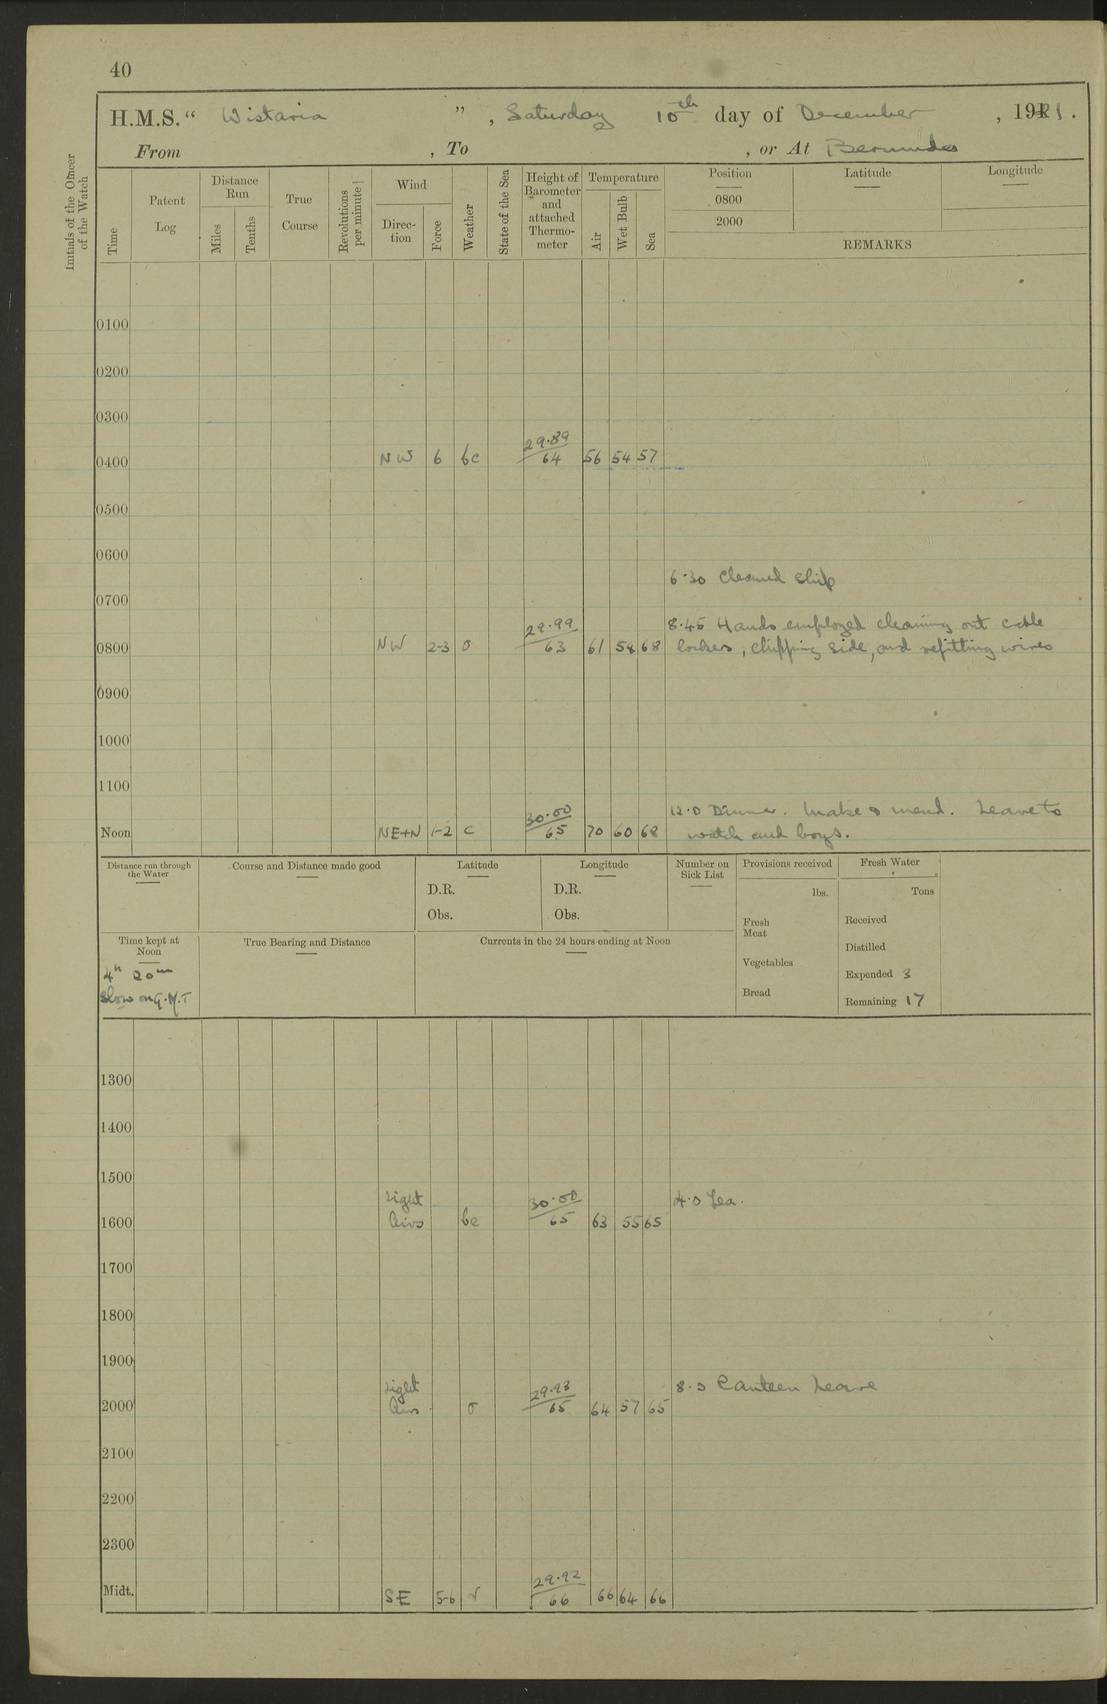 40
H.M.S. “ Wistaria ” , Saturday 10th day of December , 1921 .
From , To , or At Bermudas
Initials of the Officer of the Watch
Time
Patent Log
Distance Run
Miles
Tenths
True Course
Revolutions per minute
Wind
Direc-tion
Force
Weather
State of the Sea
Height of Barometer and attached Thermo-meter
Temperature
Air
Wet Bulb
Sea
Position Latitude Longitude
0800
2000
REMARKS
0100
0200
0300
0400 NW 6 bc 29.89 64 56 54 57
0500
0600
6.30 Cleaned ship
0700
8.45 Hands employed cleaning out cable
0800 NW 2-3 o 29.99 63 61 54 68 lockers, chipping side, and refitting wires
0900
1000
1100
12.0 Dinner. Make & mend. Leave to
Noon NE+N 1-2 c 30.00 65 70 60 68 watch and boys.
Distance run through the Water
Course and Distance made good
Latitude
D.R.
Obs.
Longitude
D.R.
Obs.
Number on Sick List
Provisions received
lbs.
Fresh Meat
Vegetables
Bread
Fresh Water
Tons
Received
Distilled
Expended 3
Remaining 17
Time kept at Noon
4h 20m
Slow on G.M.T
True Bearing and Distance
Currents in the 24 hours ending at Noon
1300
1400
1500
1600 Light Airs bc 30.00 65 63 55 65 4.0 Tea.
1700
1800
1900
2000 Light Airs o 29.93 65 64 57 65 8.0 Canteen Leave
2100
2200
2300
Midt. SE 5-6 29.92 66 66 64 66